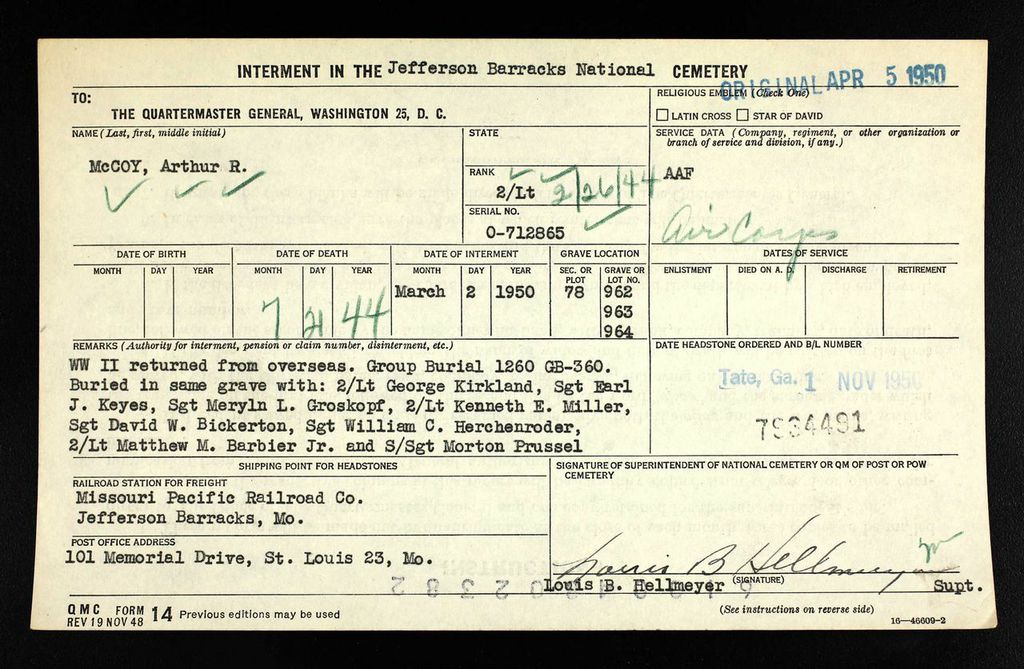 INTERMENT IN THE Jefferson Barracks National CEMETERY
ORIGINAL APR 5 1950
TO:
THE QUARTERMASTER GENERAL, WASHINGTON 25, D. C.
RELIGIOUS EMBLEM (Check One)
LATIN CROSS STAR OF DAVID
NAME (Last, first, middle initial)
McCOY, Arthur R.
STATE
RANK
2/Lt 2/26/44
SERIAL NO.
O-712865
SERVICE DATA (Company, regiment, or other organization or
branch of service and division, if any.)
AAF
Air Corps
DATE OF BIRTH
MONTH DAY YEAR
DATE OF DEATH
MONTH DAY YEAR
7 21 44
DATE OF INTERMENT
MONTH DAY YEAR
March 2 1950
GRAVE LOCATION
SEC. OR PLOT
GRAVE OR LOT NO.
78 962
963
964
DATES OF SERVICE
ENLISTMENT DIED ON A. D. DISCHARGE RETIREMENT
REMARKS (Authority for interment, pension or claim number, disinterment, etc.)
WW II returned from overseas. Group Burial 1260 GB-360.
Buried in same grave with: 2/Lt George Kirkland, Sgt Earl
J. Keyes, Sgt Meryln L. Groskopf, 2/Lt Kenneth E. Miller,
Sgt David W. Bickerton, Sgt William C. Herchenroder,
2/Lt Matthew M. Barbier Jr. and S/Sgt Morton Prussel
DATE HEADSTONE ORDERED AND B/L NUMBER
Tate, Ga. 1 NOV 1950
7934491
SHIPPING POINT FOR HEADSTONES
RAILROAD STATION FOR FREIGHT
Missouri Pacific Railroad Co.
Jefferson Barracks, Mo.
POST OFFICE ADDRESS
101 Memorial Drive, St. Louis 23, Mo.
SIGNATURE OF SUPERINTENDENT OF NATIONAL CEMETERY OR QM OF POST OR POW
CEMETERY
Louis B Hellmeyer
Louis B. Hellmeyer (SIGNATURE) Supt.
QMC FORM 14 Previous editions may be used
REV 19 NOV 48
(See instructions on reverse side)
16—46609-2